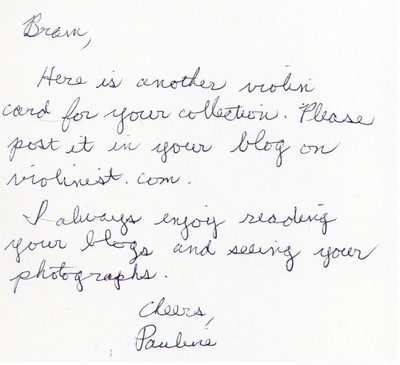 Bram,
Here is another violin
card for your collection. Please
post it in your blog on
violinist.com.
I always enjoy reading
your blogs and seeing your
photographs.
Cheers,
Pauline